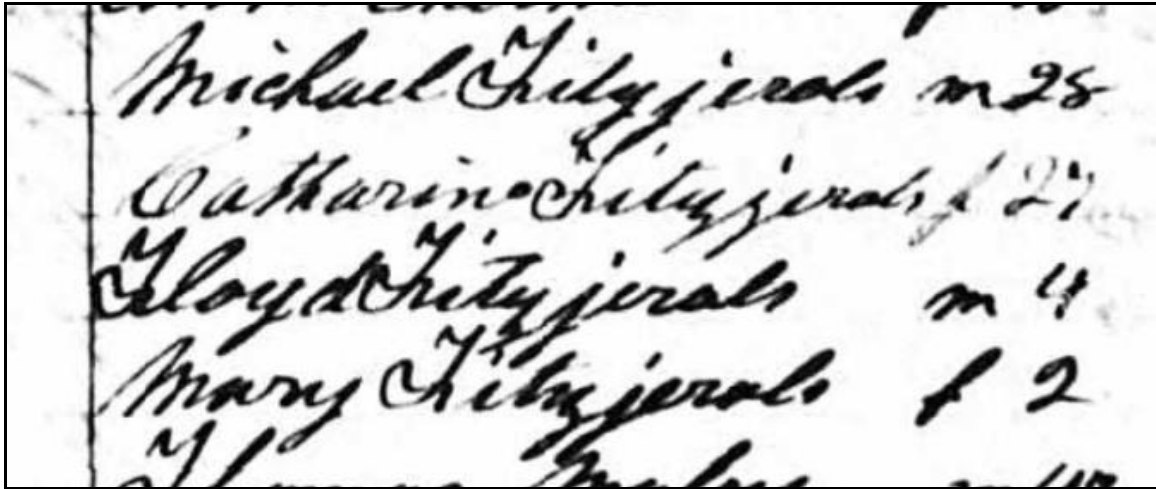 Michael Fitzjerals m 28
Catharine Fitzjerals f 27
Floyd Fitzjerals m 4
Mary Fitzjerals f 2